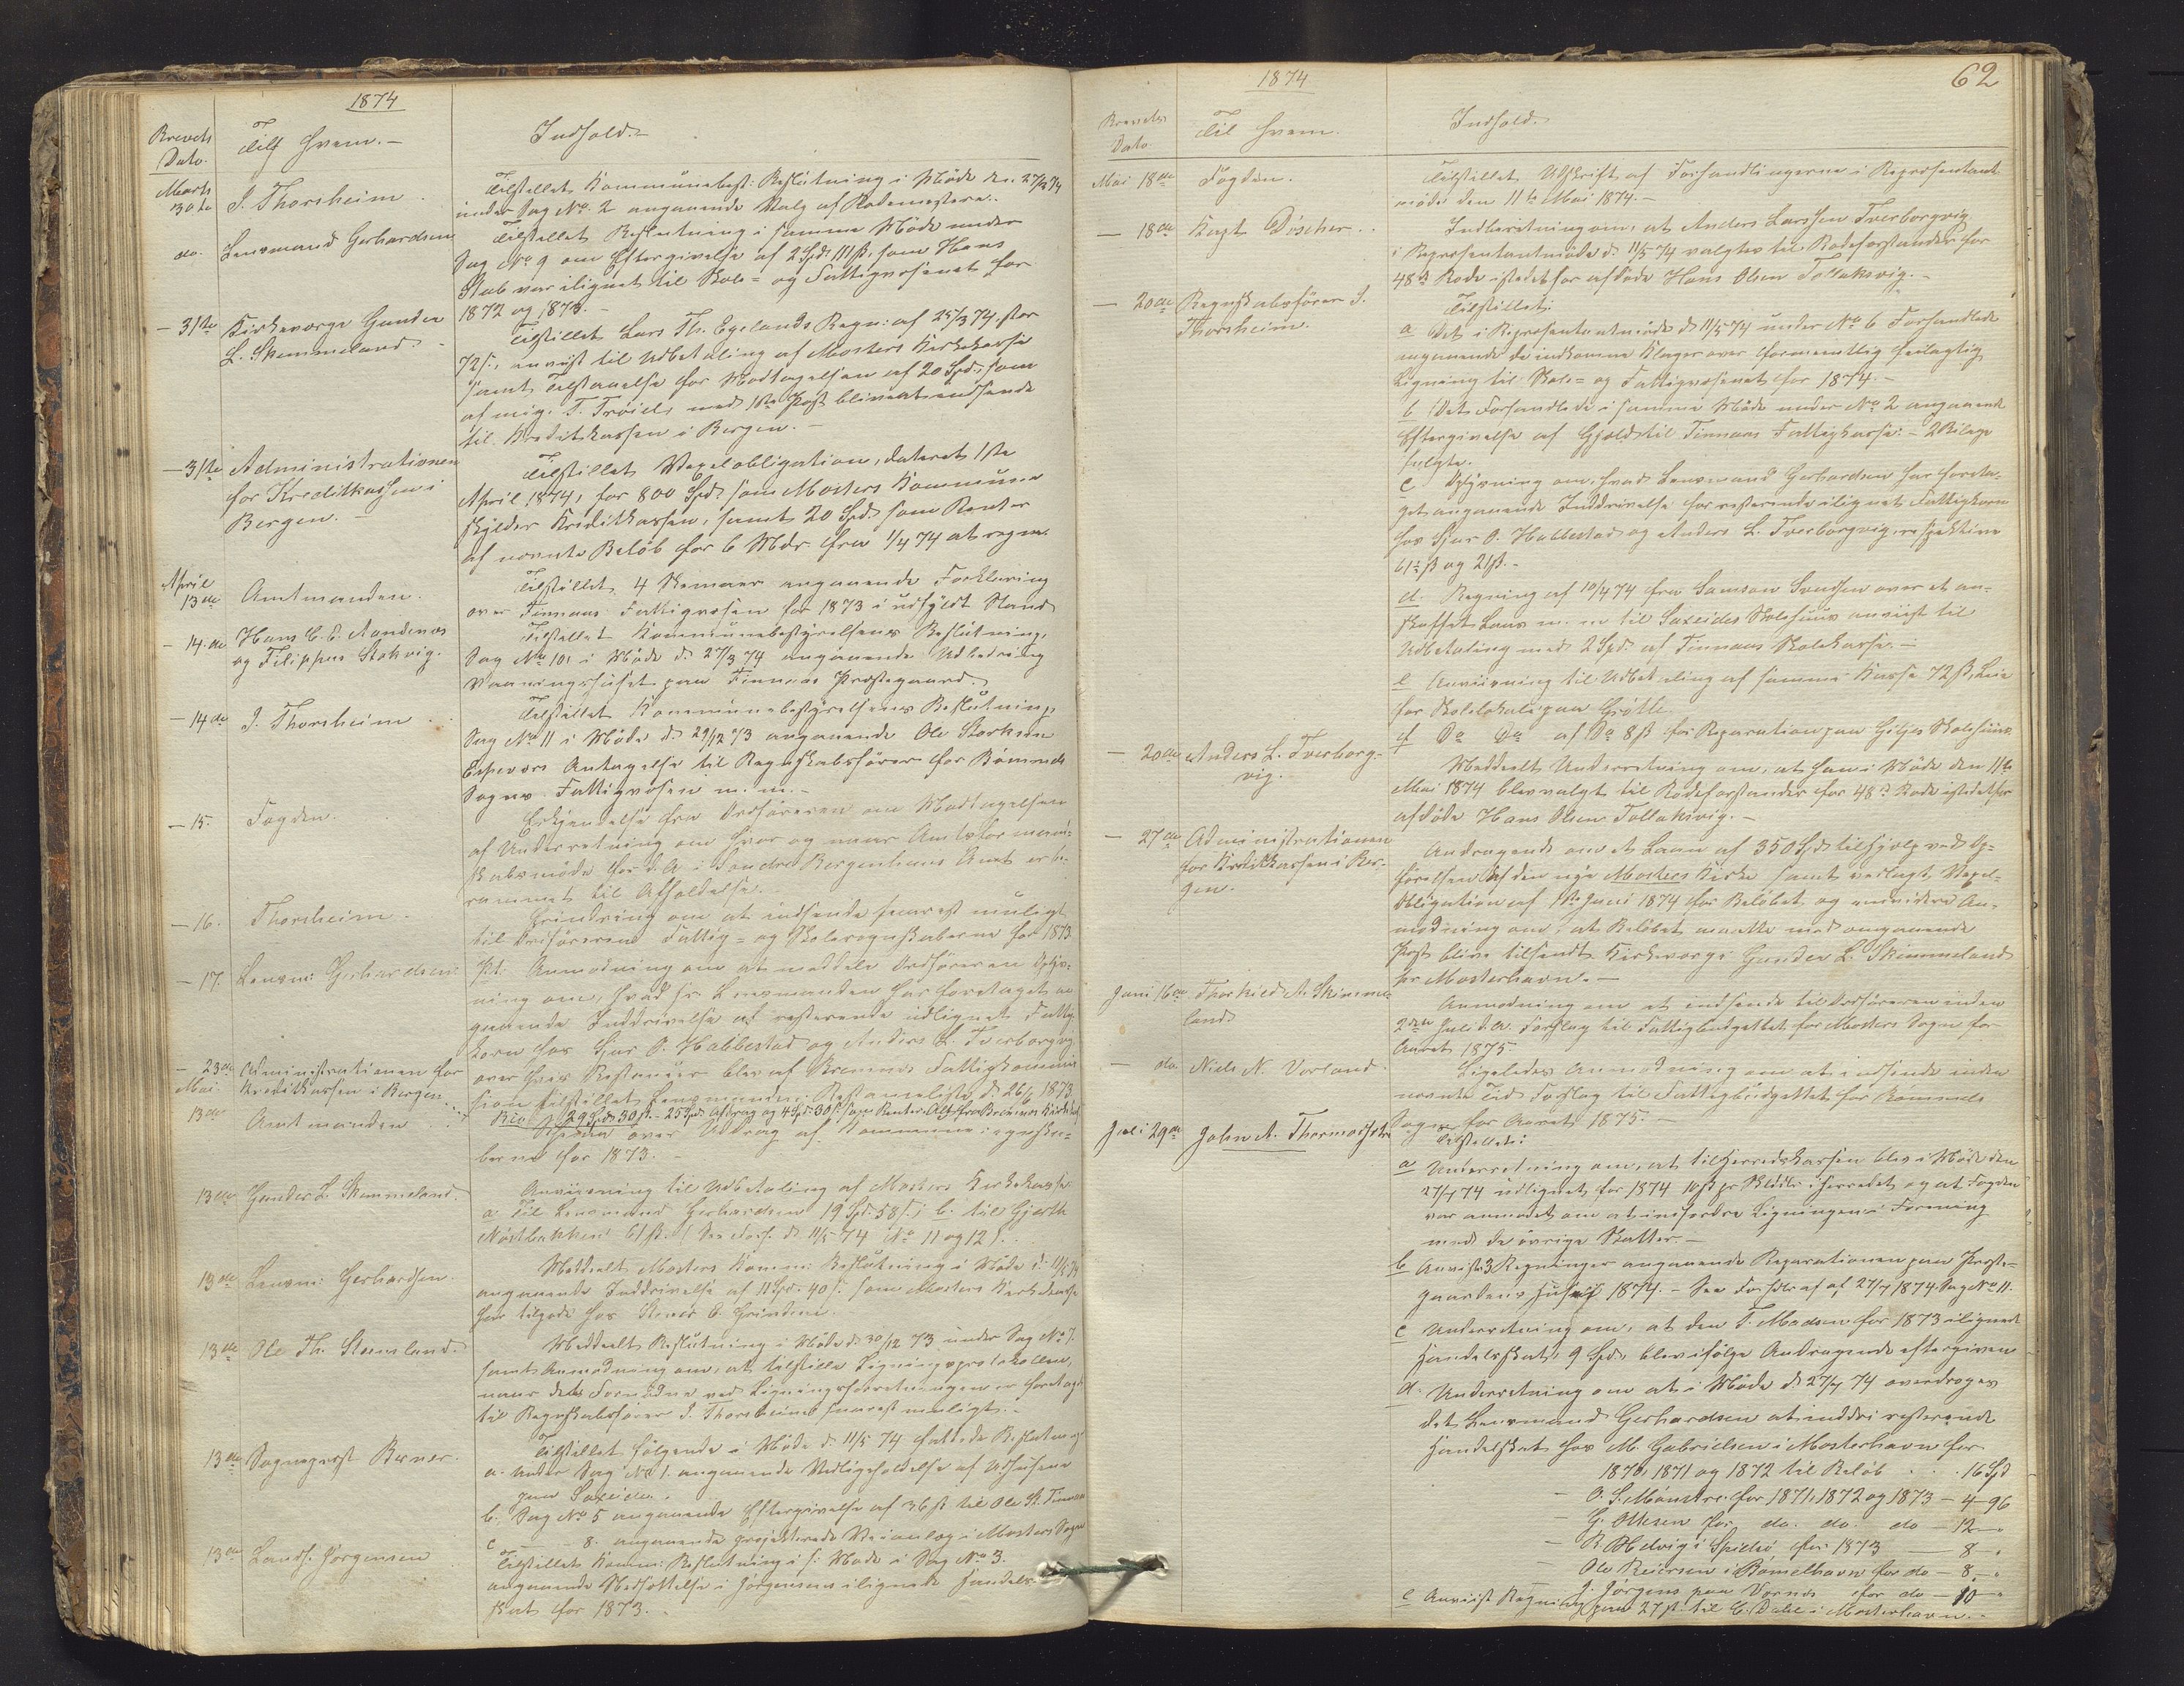 1874
Brevets Dato. Till Hvem. – Indhold. –
Marts 30te J. Thorsheim. Tilstillet Kommunebest: Beslutning i Møde den 27/3 74
under Sag No. 2 angaaende Valg af Rodemestere. –
do. Lensmand Gerhardsen Tilstillet Beslutning i samme Møde under
Sag No 9 om Eftergivelse af 2 Spd. 111 ß, som Hans
Stub var ilignet til Skole= og Fattigvæsenet for
1872 og 1873. –
– 31te Kirkeværge Gunder L. Skimmeland. Tilstillet Lars Th. Egelands Regn: af 25/3 74, stor
72 ß, anvist til Udbetaling af Mosters Kirkekasse
samt Tilstaaelse for Modtagelsen af 20 Spd., som
af mig, T. Trøiel, med 1ste Post bliver at indsende
til Kreditkassen i Bergen. –
– 31te Administrationen for Kreditkassen i Bergen. – Tilstillet Vexelobligation, dateret 1ste
April 1874, for 800 Spd. som Mosters Kommune
skylder Kreditkassen, samt 20 Spd. som Renter
af nævnte Beløb for 6 Mdr. fra 1/4 74 at regne.
April 13de Amtmanden. Tilstillet 4 Skemaer angaaende Forklaring
over Finnaas Fattigvæsen for 1873 i udfyldt Stand
– 14.de Hans C. E. Aandenæs og Filippus Stokvig. Tilstillet Kommunebestyrelsens Beslutning,
Sag No 10, i Møde d. 27/3 74 angaaende Udbedring
Vaaningshuset paa Finnaas Præstegaard.
– 14de J. Thorsheim Tilstillet Kommunebestyrelsens Beslutning,
Sag No 11 i Møde d. 29/12 73 angaaende Ole Størksen
Espevær Antagelse til Regnskabsfører for Bømmels
Sogns Fattigvæsen m. m. –
– 15. Fogden. Erkjendelse fra Ordføreren om Modtagelsen
af Underretning om hvor og naar Amtsformand-
skabsmøde for d. A. i Søndre Bergenhuus Amt er be-
rammet til Afholdelse.
– 16. Thorsheim. Erindring om at indsende snarest muligt
til Ordføreren Fattig= og Skoleregnskaberne for 1873
– 17. Lensm: Gerhardsen. Pd. Anmodning om at meddele Ordføreren Oplys-
ning om, hvad hr. Lensmanden har foretaget an-
gaaende Inddrivelse af resterende udlignet Fattig-
korn hos Sjur O. Habbestad og Anders L. Tverborgvig
over hvis Restancer blev af Bremnes Fattigkommis-
sion tilstillet Lensmanden Restanceliste d. 26/6 1873
– 23de Administrationen for Kreditkassen i Bergen 29 Spd. 30 ß. – 25 Spd. Afdrag og 4 Spd. 30 ß som Renter. Alt fra Bremnes Kirke
Mai 13de Amtmanden over Uddrag af Kommuneregnska-
berne for 1873. –
13de Gunder L. Skimmeland. Anviisning til Udbetaling af Mosters Kirkekasse
a Til Lensmand Gerhardsen 19 Spd. 58 ß; b. til Gjerth
Nøstbakken 61 ß. (See Forh. d. 11/5 74 No 11 og 12).
13de Lensm: Gerhardsen. Meddelt Mosters Komm: Beslutning i Møde d. 11/5 74
angaaende Inddrivelse af 11 Spd. 40 ß. som Mosters Kirkekasse
har tilgode hos
13de Ole Th. Steinsland. Meddeelt Beslutning i Møde d. 30/12 73 under Sag No 7.
samt Anmodning om, at tilstille Ligningsprotokollen,
naar det Fornødne ved Ligningsforretningen er foretaget
til Regnskabsfører J. Thorsheim snarest muligt. –
13de Sogneprest Berner. Tilstillet følgende i Møde d. 11/5 74 fattede Beslutninger
a. under Sag No 1. angaaende Vedligeholdelse af Udhusene
paa Saxeide.
b. Sag No 5 angaaende Eftergivelse af 36 ß til Ole K. Finnaas
c – – 8. angaaende projekterede Veianlæg i Mosters Sogn
13de Landh. Jørgensen Tilstillet Komm: Beslutning i s: Møde i Sag No 3.
angaaende Nedsættelse i Jørgensens ilignede Handels-
skat for 1873. –
62
1874
Brevets Dato. Til Hvem. Indhold.
Mai 18de Fogden. Tilstillet Udskrift af Forhandlingerne i Repræsentant
møde den 11te Mai 1874. –
– 18de Kapt Discher. Indberetning om, at Anders Larssen Tverborgvig
i Repræsentantmøde d. 11/5 74 valgtes til Rodeforstander for
48de Rode istedetfor afdøde Hans Olsen Tollaksvig. –
– 20de Regnskabsfører J. Thorsheim. Tilstillet:
a Det i Repræsentantmøde d 11/5 74 under No 6 Forhandlede
angaaende de indkomne Klager over formeentlig feilagtig
Ligning til Skole= og Fattigvæsenet for 1874. –
b Det Forhandlede i samme Møde under No 2 angaaende
Eftergivelse af Gjæld til Finnaas Fattigkasse: – 2 Bilage
fulgte.
c Oplysning om, hvad Lensmand Gerhardsen har foreta-
get angaaende Inddrivelse for resterende ilignet Fattigkorn
hos Sjur O. Habbestad og Anders L. Tverborgvig, respektive
61½ ß og 21 ß. –
d. Regning af 10/4 74 fra Samson Svendsen over et an-
skaffet Laas m. m til Saxeides Skolehuus anviist til
Udbetaling med 2 Spd. af Finnaas Skolekasse. –
e Anviisning til Udbetaling af samme Kasse 72 ß, Leie
for Skolelokale paa Grøtle.
f Do Do af Do 8 ß for Reparation paa Giljes Skolehuus
– 20de Anders L. Tverborg- vig. Meddeelt Underretning om, at han i Møde den 11te
Mai 1874 blev valgt til Rodeforstander for 48de Rode istedetfor
afdøde Hans Olsen Tollaksvig. –
– 27de Administrationen for Kreditkassen i Ber- gen. Andragende om et Laan af 350 Spd. til Hjælp ved Op-
førelsen af den nye Mosters Kirke samt vedlagt Vexel-
Obligation af 1ste Juni 1874 for Beløbet og endvidere An-
modning om, at Beløbet maatte med omgaaende
Post blive tilsendt Kirkeværge Gunder L. Skimmeland
pr Mosterhavn. –
Juni 16de Thorkild A. Skimme- land Anmodning om at indsende til Ordføreren inden
2den Juli d. A. Forslag til Fattigbudgettet for Mosters Sogn for
Aaret 1875
– do. Niels N. Vorland. Ligeledes Anmodning om at indsende inden
nævnte Tid Forslag til Fattigbudgettet for Bømmels
Sogn for Aaret 1875. –
Juli 29de John A. Thormodsæter Tilstillet:
a Underretning om, at til Herredskassen blev i Møde den
27/7 74 udlignet for 1874 10 ß pr Skdlr. i Herredet og at Fogden
var anmodet om at indfordre Ligningen i Forening
med de øvrige Skatter. –
b Anvist 3 Regninger angaaende Reparationen paa Præste-
gaardens Huse i 1874. – See Forhdl. af 27/7 1874. Sag No 11.
c Underretning om, at den T. Madsen for 1873 ilignede
Handelsskat, 9 Spd, blev ifølge Andragende eftergiven
d. Underretning om at i Møde d 27/7 74 overdroges
det Lensmand Gerhardsen at inddri resterende
Handelskat hos M. Gabrielsen i Mosterhavn for
1870, 1871 og 1872 til Beløb . . . 16 Spd
– O. S. Mønstre. for 1871, 1872 og 1873 – 4–96
– G. Ottesen for do. do. do – 12–"
– R Helvig i Spidsø for 1873 — 8 "
– Ole Reiersen i Bømelhavn for do – 8–"
– J. Jørgens paa Vornes for do – 10–"
e Anviist Regning paa 27 ß til C. Dahl i Mosterhavn. –